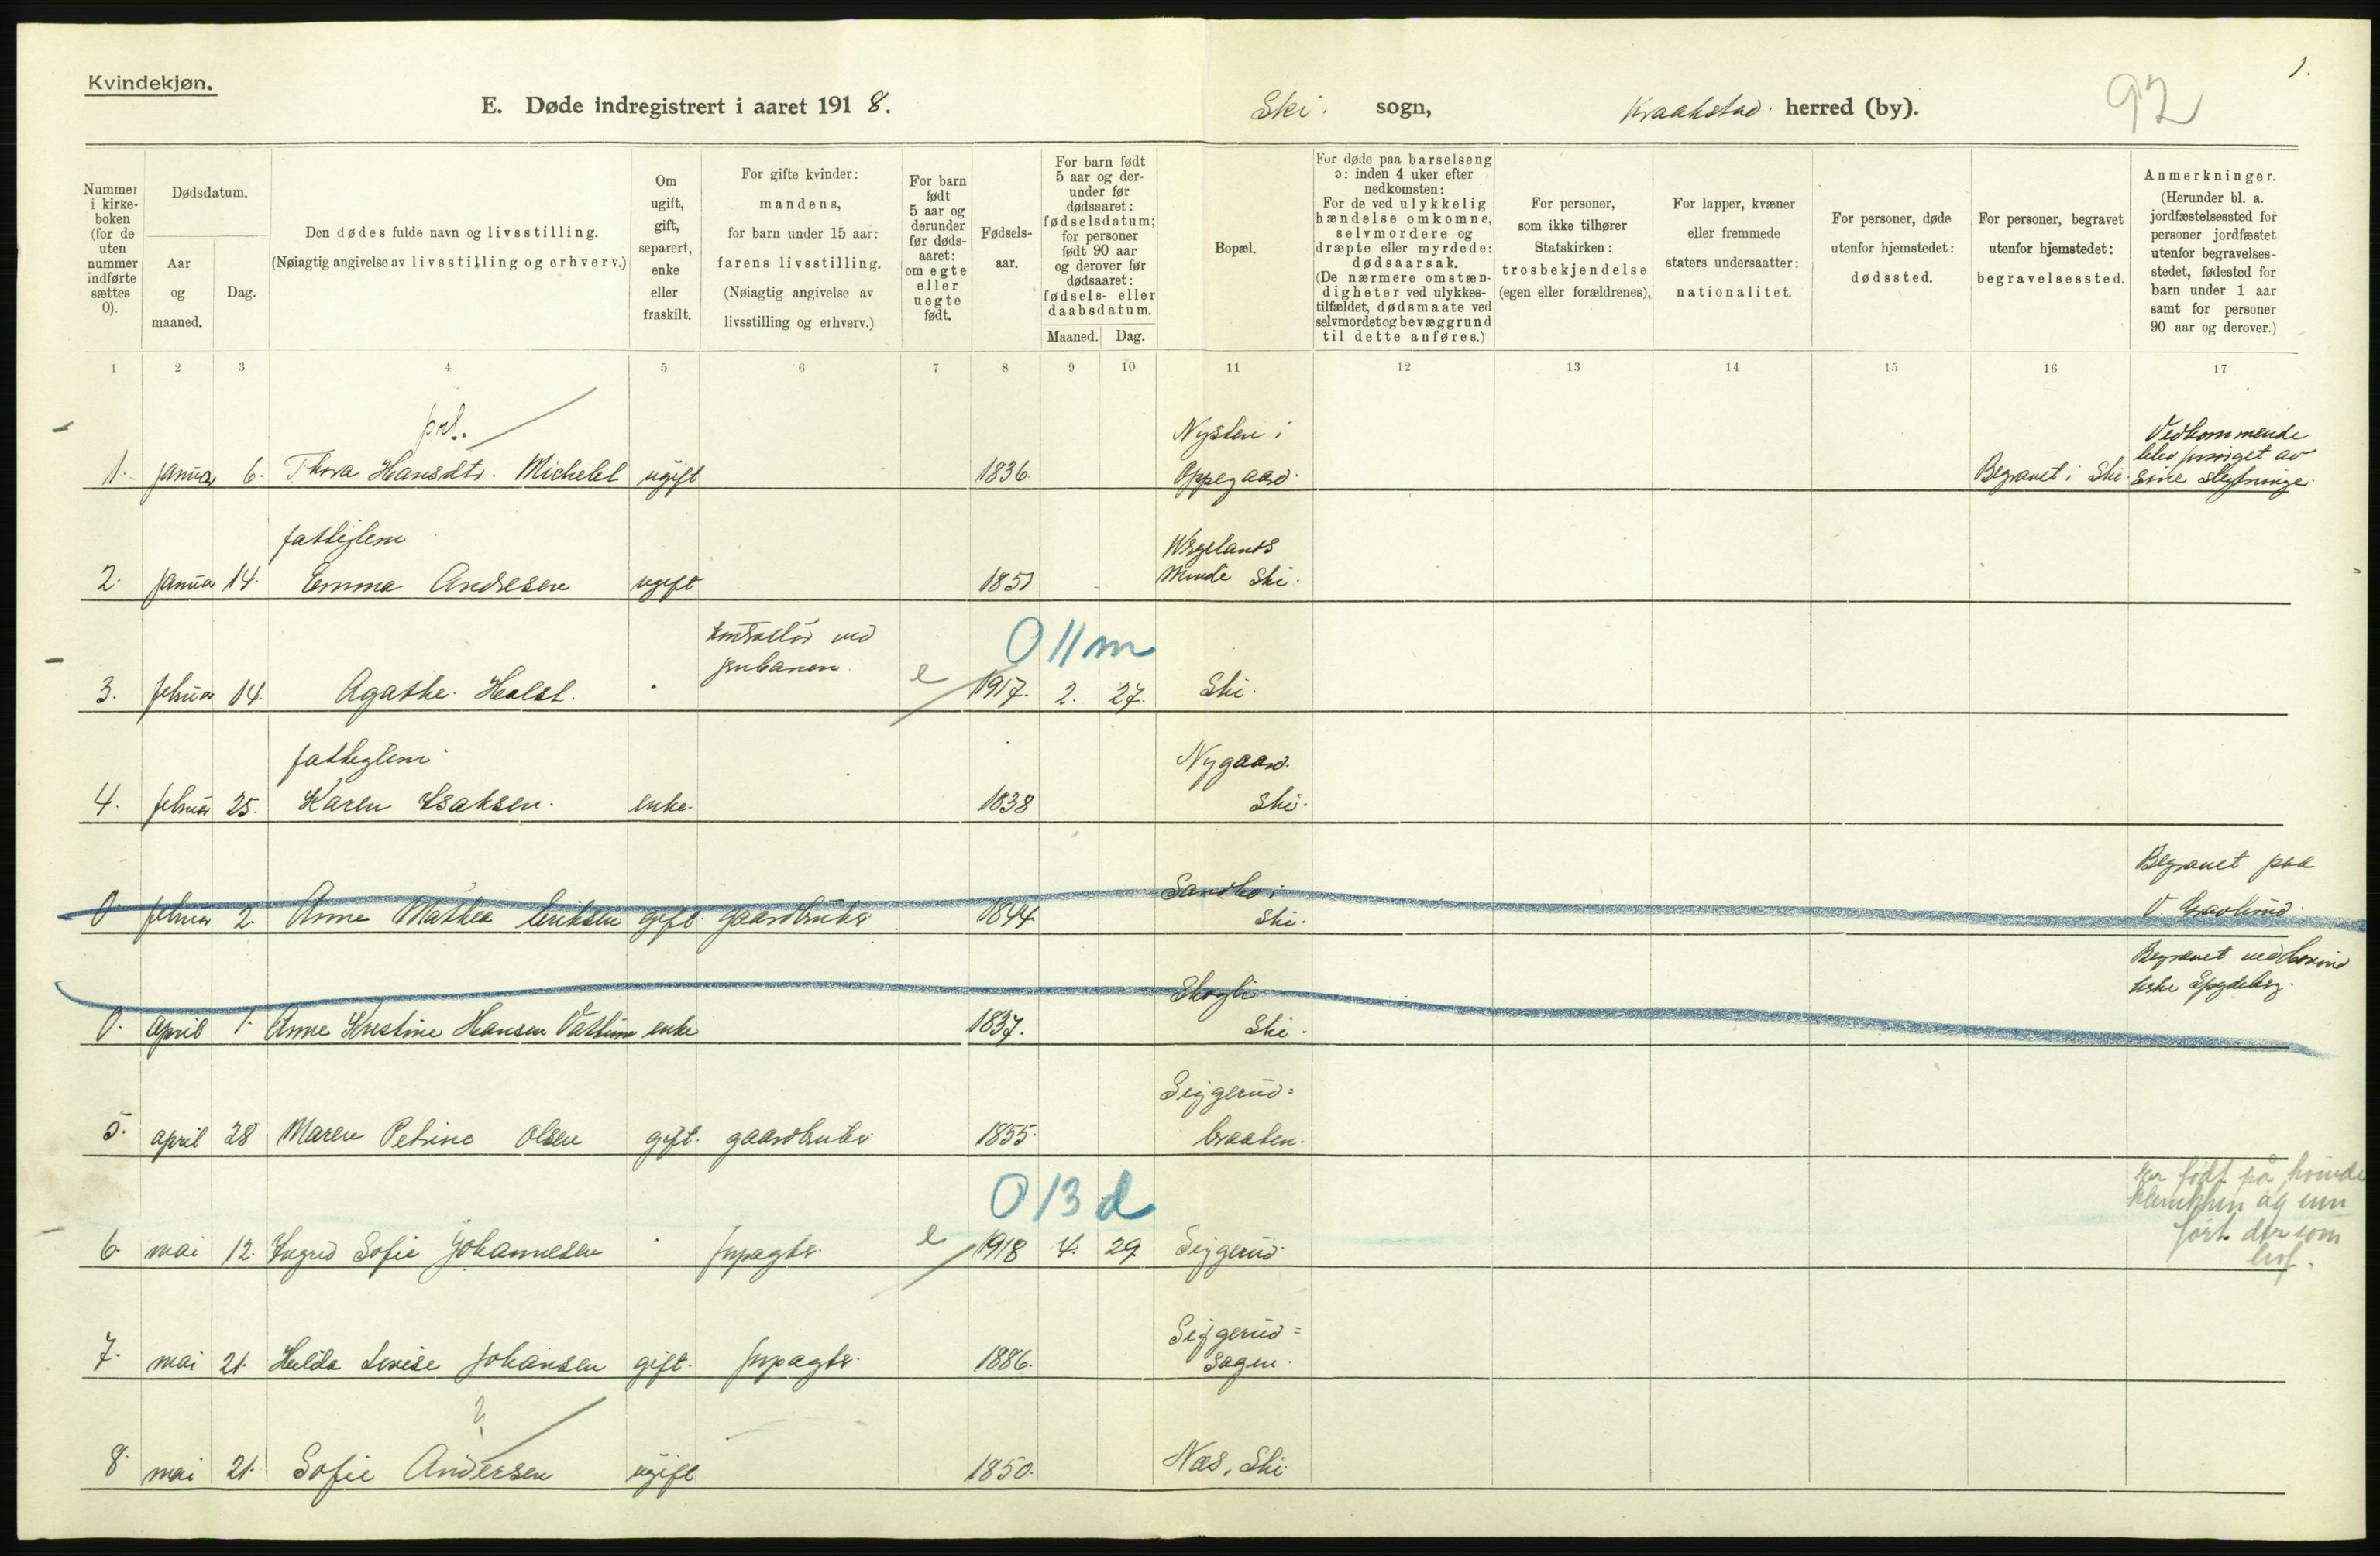 Kvindekjøn.
1.
92
E. Døde indregistrert i aaret 1918.
Ski. sogn,
Kraakstad herred (by).
Nummer i kirke-boken (for de uten nummer indførte sættes 0).
Dødsdatum.
Aar og maaned.
Dag.
Den dødes fulde navn og livsstilling.
(Nøiagtig angivelse av livsstilling og erhverv.)
Om ugift, gift, separert, enke eller fraskilt.
For gifte kvinder: mandens, for barn under 15 aar: farens livsstilling.
(Nøiagtig angivelse av livsstilling og erhverv.)
For barn født 5 aar og derunder før døds-aaret: om egte eller uegte født.
Fødsels-aar.
For barn født 5 aar og der-under før dødsaaret: fødselsdatum; for personer født 90 aar og derover før dødsaaret: fødsels- eller daabsdatum.
Maaned.
Dag.
Bopæl.
For døde paa barselseng ɔ: inden 4 uker efter nedkomsten:
For de ved ulykkelig hændelse omkomne, selvmordere og dræpte eller myrdede: dødsaarsak.
(De nærmere omstæn-digheter ved ulykkes-tilfældet, dødsmaate ved selvmordet og bevæggrund til dette anføres.)
For personer, som ikke tilhører Statskirken: trosbekjendelse (egen eller forældrenes).
For lapper, kvæner eller fremmede staters undersaatter: nationalitet.
For personer, døde utenfor hjemstedet: dødssted.
For personer, begravet utenfor hjemstedet: begravelsessted.
Anmerkninger.
(Herunder bl. a. jordfæstelsessted for personer jordfæstet utenfor begravelses-stedet, fødested for barn under 1 aar samt for personer 90 aar og derover.)
1 2 3 4 5 6 7 8 9 10 11 12 13 14 15 16 17
Nysten i
Vedkommende
blev forsørget av
1. januar 6. Thora Hansdtr. Michelet ugift 1836. Oppegaard. Begravet i Ski. sine slegtninge.
fattiglem
2. januar 14. Emma Andresen ugift 1851 Minde Ski.
kontrollør ved
0 11 m
3. februar 14. Agathe Holst. e 1917. 2. 27. Ski.
fattiglem
Nygaard.
4. februar 25. Karen Isaksen. enke. 1838 Ski.
Begravet paa
0 februar 2. Anne Mathea Eriksen gift. gaardbruker 1844 Ski.
Begravet ved
Skogli
0. april 1. Anne Kristine Hansen enke 1837. Ski.
Siggerud=
5. april 28 Maren Petrine Olsen gift. gaardbruker 1855. braaten.
0 13 d
er født på kvinde
ført der som
6. mai 12. Ingrid Sofie Johannesen forpagter. e 1918 4. 29. Siggerud
Siggerud=
7. mai 21. Hilda Lovise Johansen gift. forpagter. 1886. sagen.
?
8. mai 21. Sofie Andersen ugift 1850. Næs, Ski